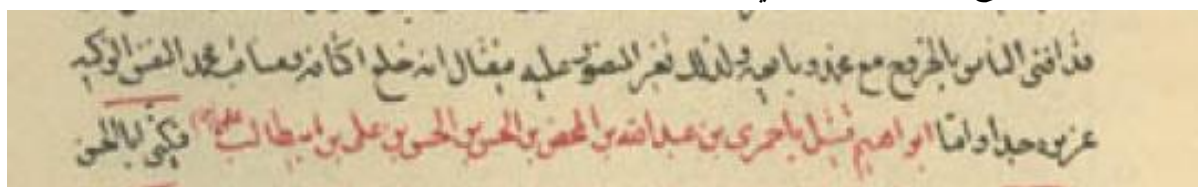 قد افتى الناس بالخروج مع محمد وبايعه ولذلك تغير المنصور عليه فيقال انه خلع اكتافه ومناقب محمد النفس الزكيه
غزيره جدا واما ابراهيم قتيل باخمرى بن عبد الله بن المحض بن الحسن بن الحسن بن على بن ابيطالب فيكنى ابا الحسن